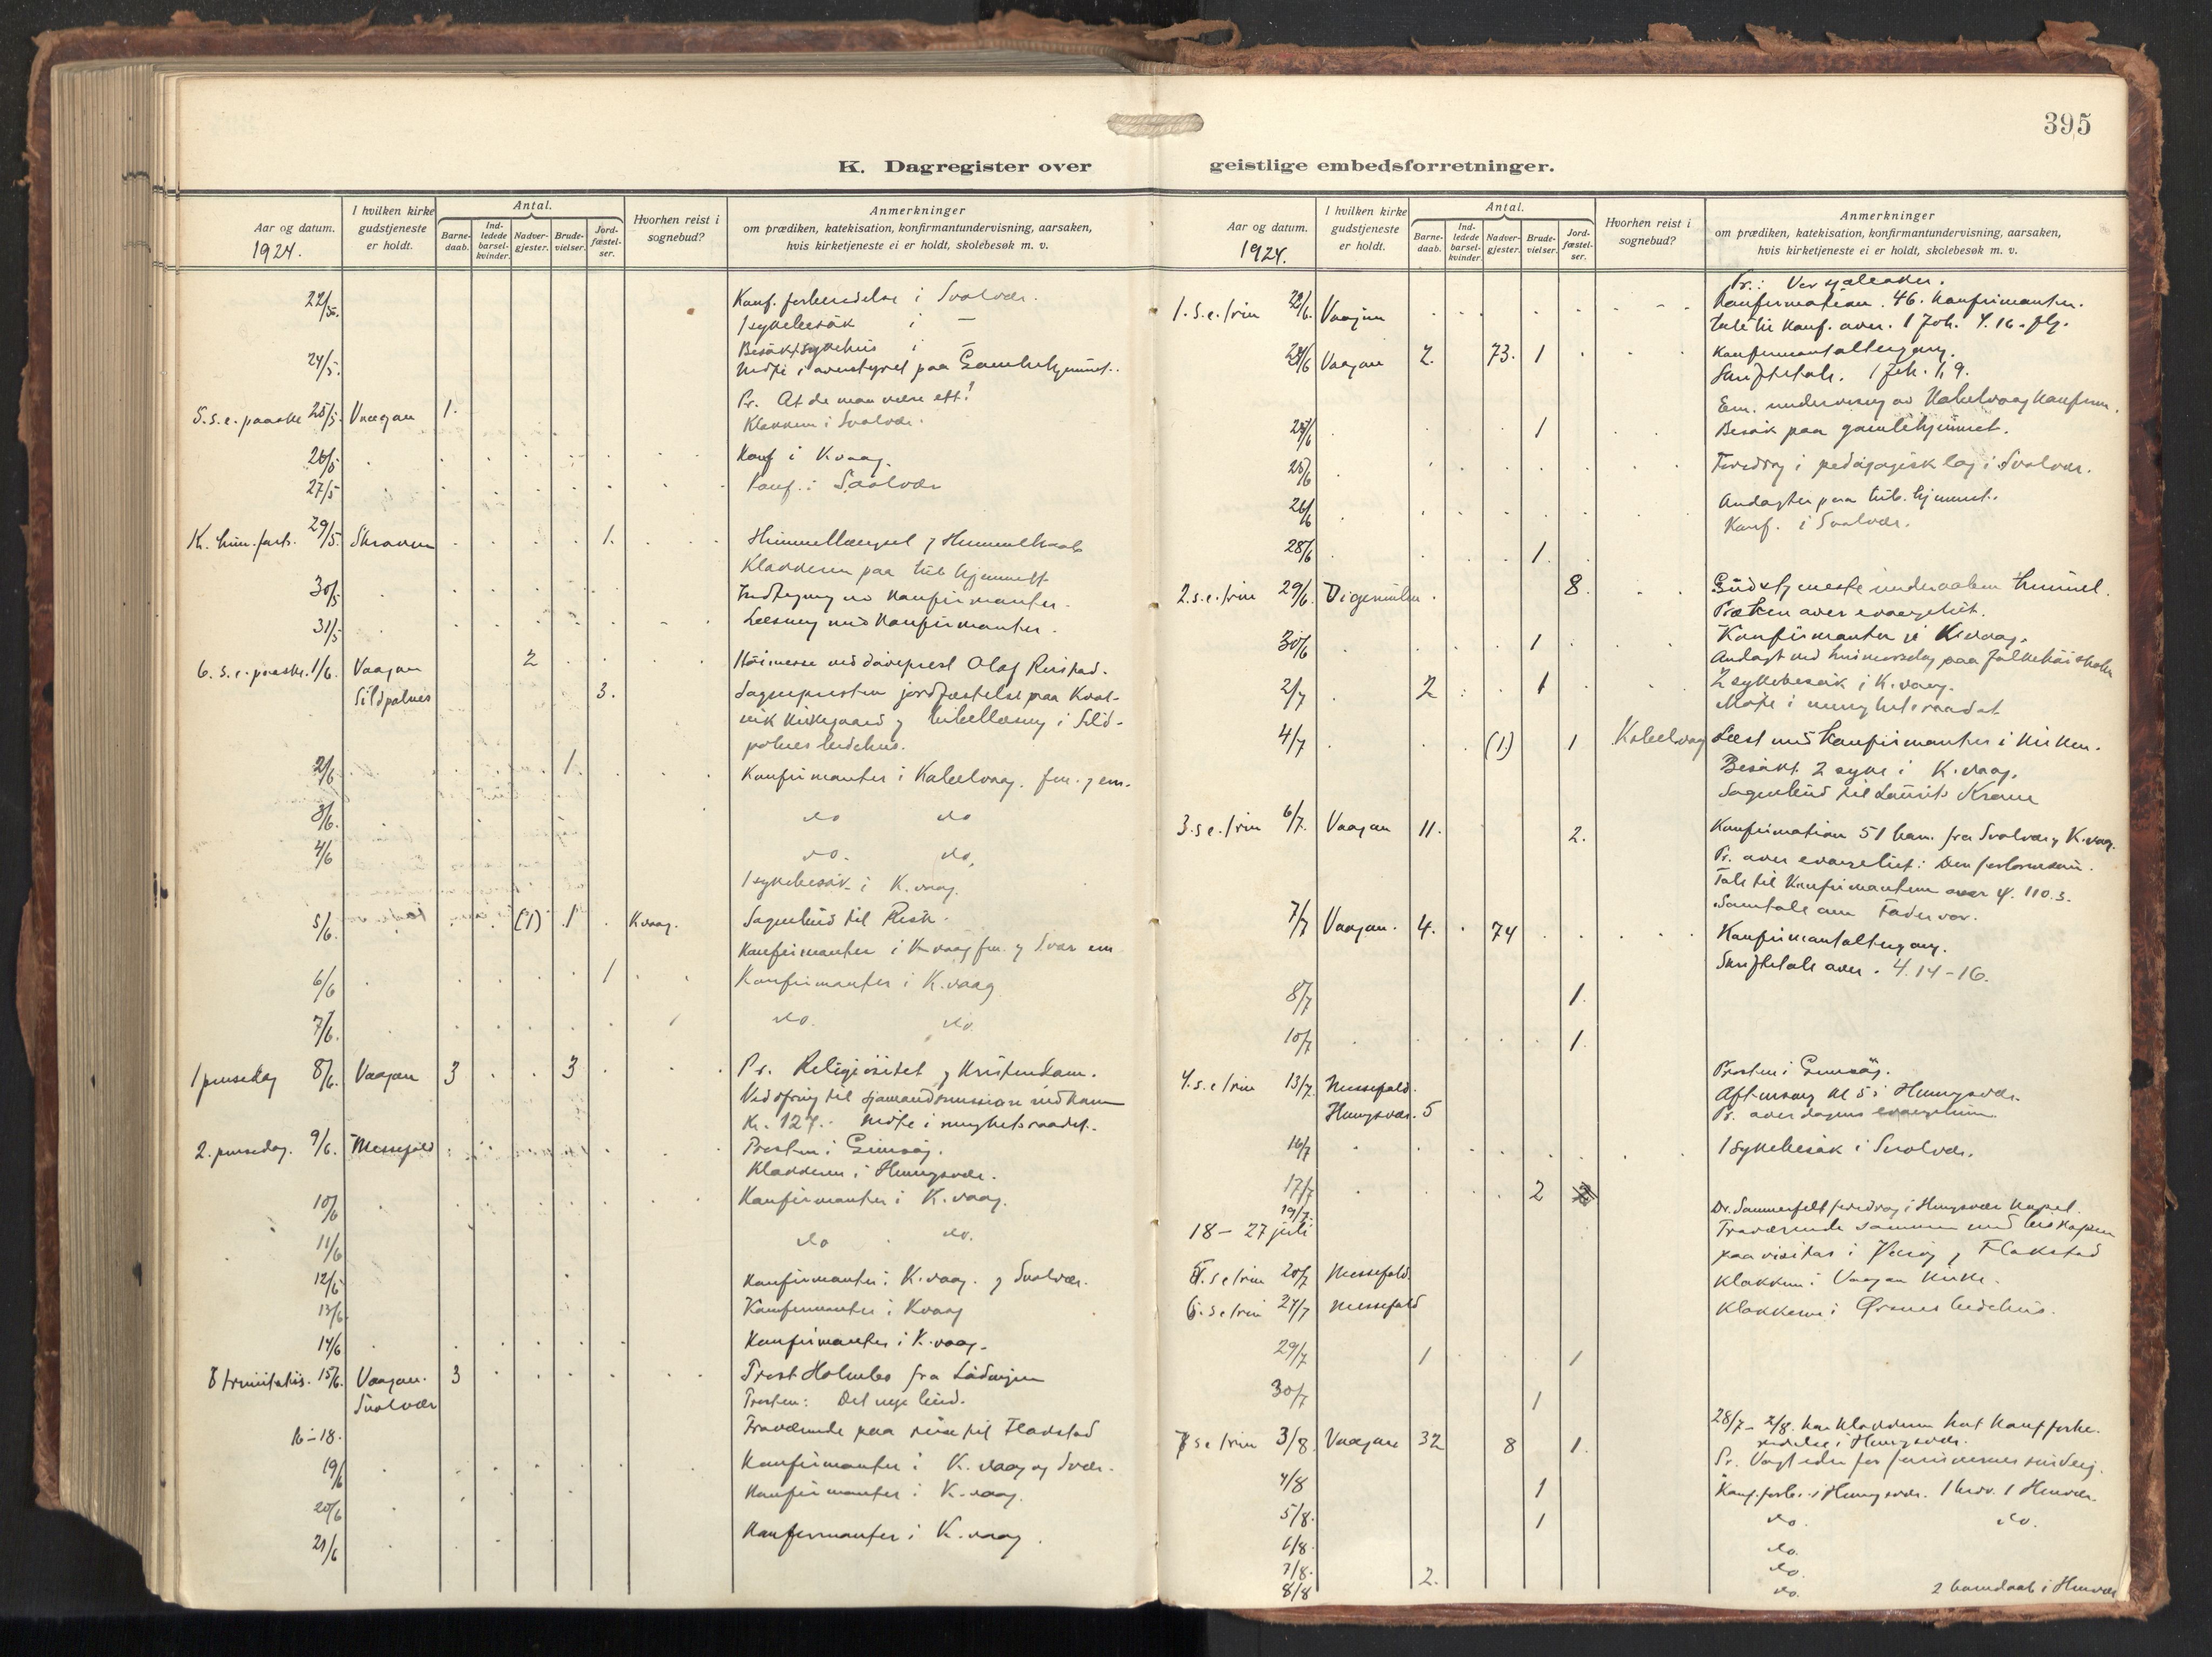 395
K. Dagregister over geistlige embedsforretninger.
Aar og datum. 1924.
I hvilken kirke gudstjeneste er holdt.
Antal.
Barne-daab.
Ind-ledede barsel-kvinder.
Nadver-gjester.
Brude-vielser.
Jord-fæstel-ser.
Hvorhen reist i sognebud?
Anmerkninger
om prædiken, katekisation, konfirmantundervisning, aarsaken,
hvis kirketjeneste ei er holdt, skolebesøk m. v.
22/5. Konf. forberedelse i Svolvær.
1 sykebesøk i —
Besøkt sykehus i —
24/5. Møte i paa Gamlehjemmet.
5. s. e. paaske 25/5. Vaagan 1. Pr. At de maa være ett!
Klokkeren i Svolvær.
26/5 Konf i K.vaag.
27/5 Konf. i Svolvær
K. him. fart. 29/5. Skroven 1. Himmellængsel og Himmelhaab
Klokkeren paa
30/5 av konfirmanter.
31/5 Læsning med konfirmanter.
6. s. e. paaske. 1/6. Vaagan 2 Høimesse ved Olaf
Sildpolnes 3. Sognepresten jordfæstelse paa
kirkegaard og bibellæsning i Sild-
polnes bedehus.
2/6 1. Konfirmanter i Kabelvaag. fm. og em.
3/6. do do
4/6 do. do.
1 sykebesøk i K.vaag.
5/6. (1) 1 K.vaag. Sognebud til
Konfirmanter i K.vaag fm. og Svær em
6/6 1 Konfirmanter i K.vaag
7/6. do. do.
1 pinsedag 8/6. Vaagan 3 3 Pr. Religiøsitet og Kristendom.
til sjømandsmission indkom
Kr. 127.- Møte i menighetsraadet.
2. pinsedag. 9/6. Messefald Presten i Gimsøy.
Klokkeren i Henningsvær.
10/6 Konfirmanter i K.vaag.
11/6 do do.
12/6 Konfirmanter i K.vaag. og Svolvær.
13/6 Konfirmanter i Kvaag
14/6 Konfirmanter i K.vaag.
trinitatis. 15/6. Vaagan. 3 Prest Holmbo fra Lødingen
Svolvær Presten: Det nye bud.
16-18. Fraværende paa reise til Flakstad
19/6 Konfirmanter i K.vaag og Svær.
20/6 Konfirmanter i K.vaag.
21/6 Konfirmanter i K.vaag.
Aar og datum. 1924.
I hvilken kirke gudstjeneste er holdt.
Antal.
Barne-daab.
Ind-ledede barsel-kvinder.
Nadver-gjester.
Brude-vielser.
Jord-fæstel-ser.
Hvorhen reist i sognebud?
Anmerkninger
om prædiken, katekisation, konfirmantundervisning, aarsaken,
hvis kirketjeneste ei er holdt, skolebesøk m. v.
Pr.:
1. s. e. trin 22/6. Vaagan Konfirmation. 46. konfirmanter.
Tale til konf. over. 1 Joh. 4. 16. flg.
Vaagan 2. 73. 1 Konfirmantaltergang.
Skriftetale. 1 Joh. 1, 9.
Em. undervisning av Kabelvaag konfirm.
1 Besøk paa gamlehjemmet.
25/6 Foredrag i pedagogisk lag i Svolvær.
Andagter paa
26/6 Konf. i Svolvær.
28/6 1.
2. s. e. trin 29/6. Digermulen 8. Gudstjeneste under aaben himmel.
Præken over evangeliet.
30/6 1 Konfirmanter i K.vaag.
Andagt ved paa folkehøiskolen
2/7 2 1 2 sykebesøk i K.vaag.
Møte i menighetsraadet
4/7 (1) 1 Kabelvaag Læst med konfirmanter i kirken.
Besøkt 2 syke i K.vaag.
Sognebud til Laurits
3. s. e. trin 6/7. Vaagan 11. 2. Konfirmation 51 barn. fra Svolvær og K.vaag.
Pr. over evangeliet: Den fortapte søn.
Tale til Konfirmantene over 110. 3.
Samtale om Fader vor.
7/7 Vaagan. 4. 74 Konfirmantaltergang.
Skriftetale over. 4. 14-16.
8/7 1.
10/7 1.
4. s. e. trin 13/7. Messefald. Presten i Gimsøy.
Henngsvær. 5 Aftensang kl 5 i Henngsvær.
Pr. over dagens evangelium
1 Sykebesøk i Svolvær.
17/7 2
19/7. Dr. Sommerfelt foredrag i Henngsvær kapel.
18 – 27 juli Fraværende sammen med biskopen
paa visitas i Værøy og Flakstad
5. s e trin 20/7 Messefald. Klokkeren i Vaagan kirke.
6. s e trin 27/7 Messefald Klokkeren i Ørsnes bedehus.
29/7 1 1
30/7 1
28/7 – 2/8. har klokkeren hat konf forbe-
redelse i Henngsvær.
7 s e trin 3/8. Vaagan 32 8 1. Pr. Vogt eder for farisæernes surdeig.
4/8 1 Konf. forb. i Henngsvær.
5/8. 1 do. do.
6/8. do.
7/8. do.
8/8 2. do. 2 barnedaab i Henvær